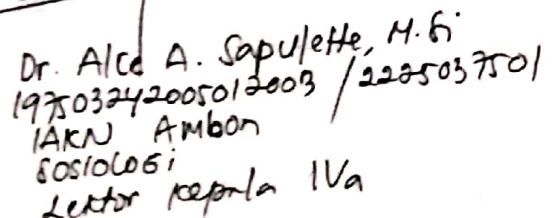 Dr. Alce A. Sapulette, M.Si
197503242005012003 / 2225037501
IAKN Ambon
SOSIOLOGi
Lektor Kepala IVa